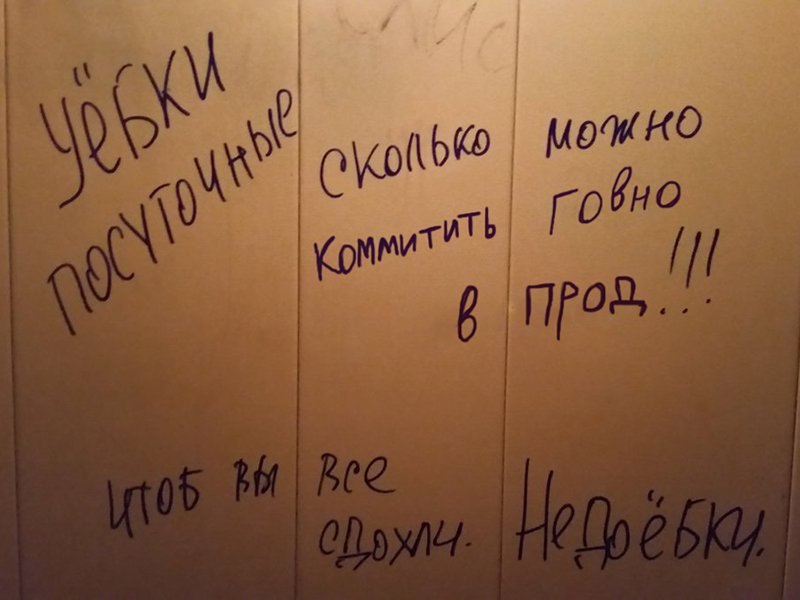 УЁБКИ
ПОСУТОЧНЫЕ
СКОЛЬКО МОЖНО
КОММИТИТЬ ГОВНО
В ПРОД!!!
ЧТОБ ВЫ ВСЕ
СДОХЛИ. НЕДОЁБКИ.